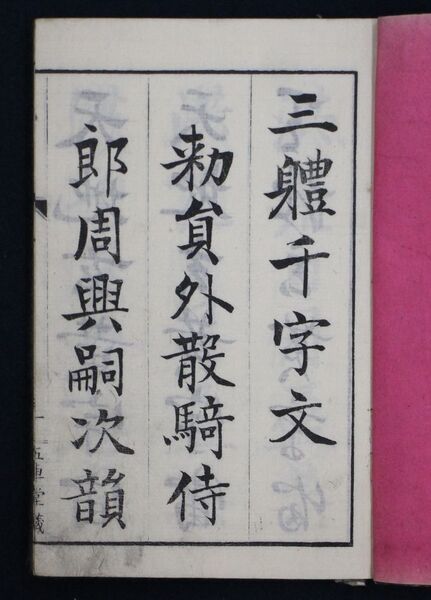 三軆千字文
勑貟外散騎侍
郎周興嗣次韻
五車堂藏